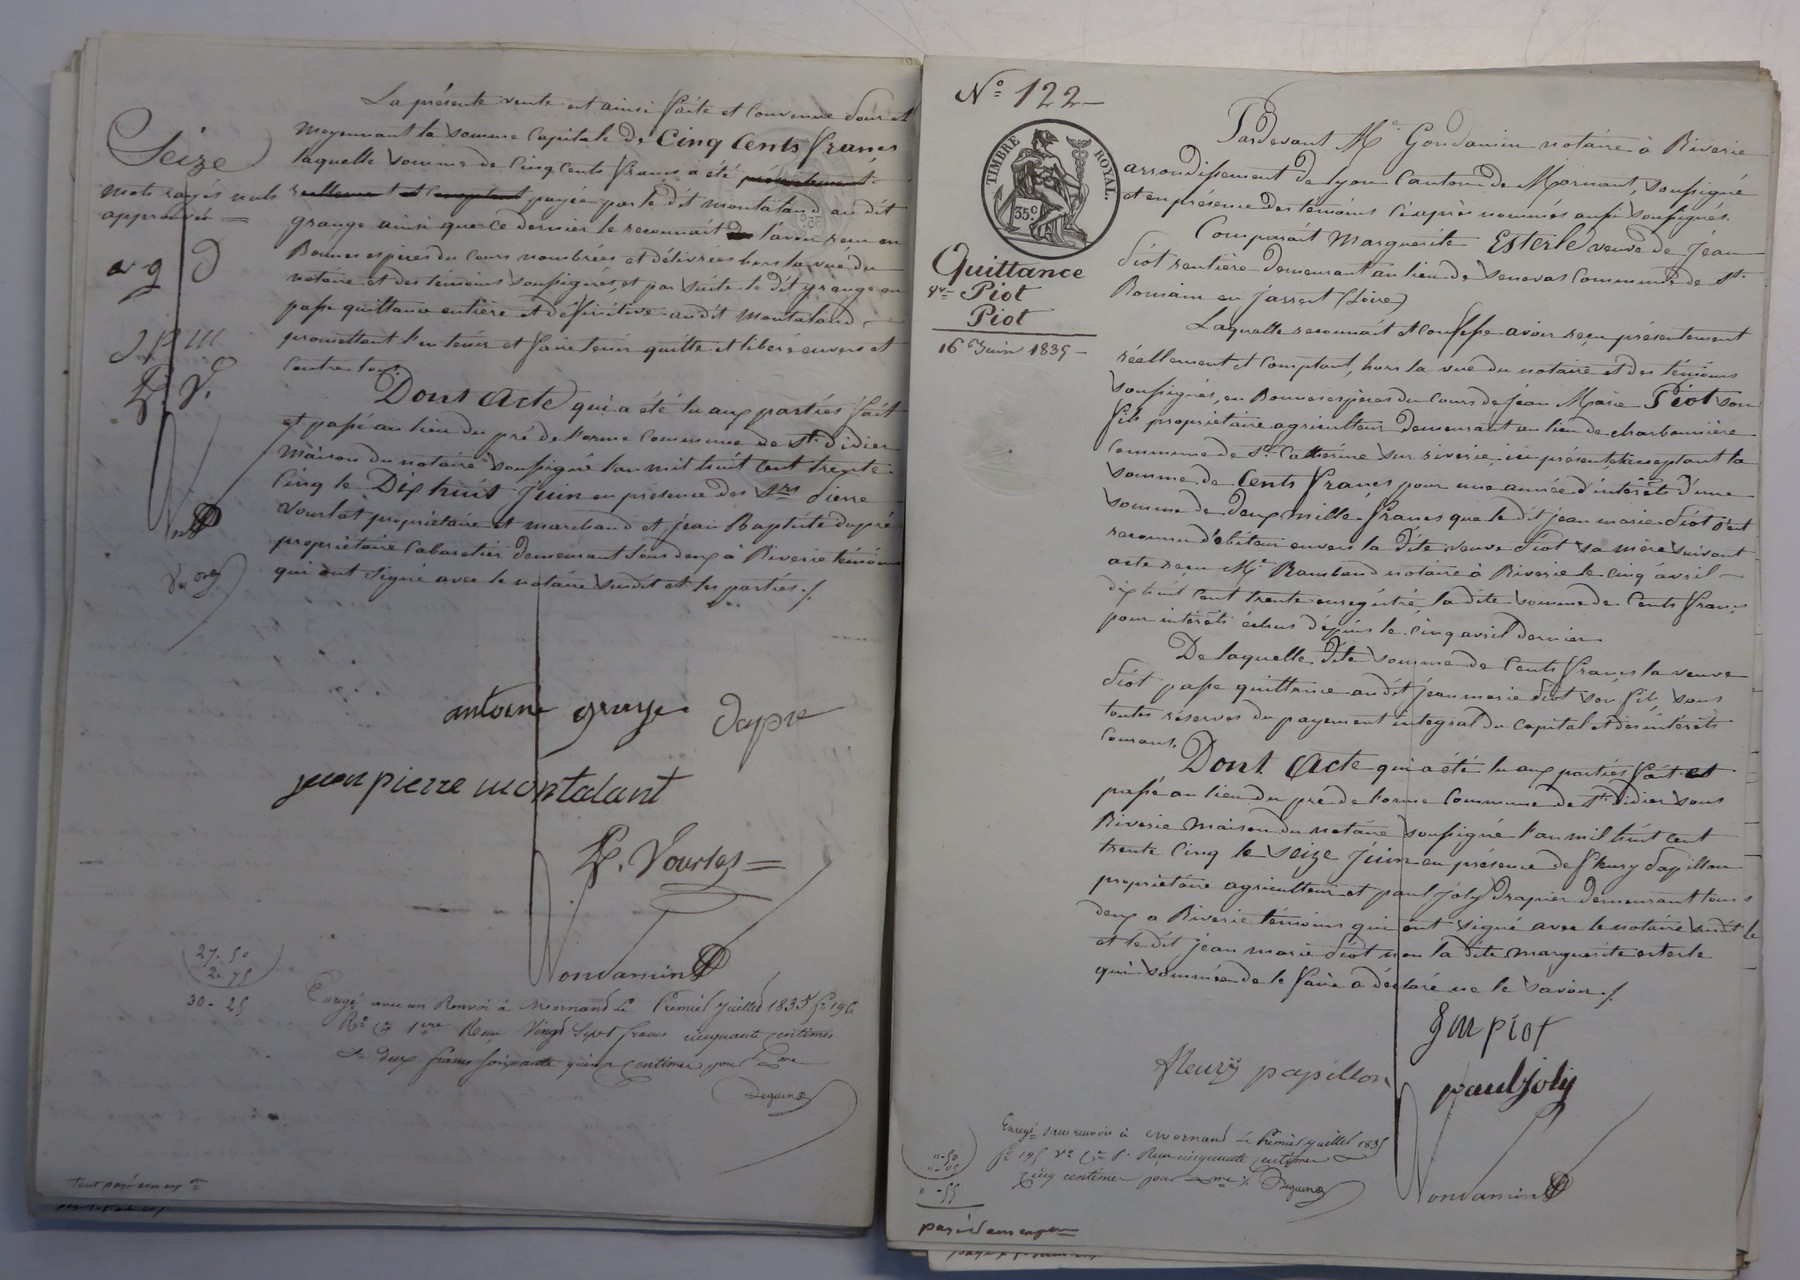 La présente vente est ainsi faite et convenue
moyennant la somme capitale de Cinq Cents francs
laquelle somme de cinq cents francs a été présentement
réellement et comptant payée par le dit montaland au dit
grange ainsi que ce dernier le reconnait de l'avoir reçu en
Bonnes espèces du cours nombrées et délivrées hors la vue du
notaire et des témoins soussignés, et par suite le dit grange en
passe quittance entière et définitive au dit montaland
promettant l'en tenir et faire tenir quitte et libéré envers et
contre tous.
Dont Acte qui a été lu aux parties fait
et passé au lieu du pré de l'orme commune de St. didier
maison du notaire soussigné l'an mil huit cent trente
cinq le Dix huit Juin en présence des Srs pierre
Vourlat propriétaire et marchand et jean Baptiste dupré
propriétaire cabaretier demeurant tous deux à Riverie témoins
qui ont signé avec le notaire susdit et les parties./.
Seize
mots rayés nuls
approuvés =
a g D
J P m
P. V.
antoine grange Dupre
jean pierre montalant
P. Vourlas =
Gondamin
27-50
2-75
30-25
Enregé avec un Renvoi à Mornand le Premier Juillet 1835 fo 196
Ro Ce 1ere Reçu Vingt Sept francs cinquante centimes
et deux francs soixante quinze centimes pour Dme
tout payé
No 122-
TIMBRE ROYAL.
35c
Quittance
Piot
Piot
16 Juin 1835-
Pardevant Me Gondamin notaire à Riverie
arrondissement de Lyon Canton de Mornant, soussigné
et en présence des témoins ci après nommés aussi soussignés.
Comparait Marguerite Esterle veuve de Jean
Piot rentière demeurant au lieu de senevas commune de St.
Romain en Jarrest (Loire)
Laquelle reconnait et confesse avoir reçu présentement
réellement et comptant, hors la vue du notaire et des témoins
soussignés, en Bonnes espèces du cours de Jean Marie Piot son
fils propriétaire agriculteur demeurant au lieu de charbonnière
commune de Ste Catherine sur riverie, ici présent, et acceptant la
somme de Cents francs pour une année d'intérêts d'une
somme de deux mille francs que le dit jean marie Piot s'est
reconnu débiteur envers la dite veuve Piot sa mère suivant
acte reçu Me Rambaud notaire à Riverie le cinq avril
dix huit cent trente enregistré, la dite somme de Cents francs
pour intérêts échus depuis le cinq avril dernier
De laquelle dite somme de Cents francs la veuve
Piot passe quittance au dit jean marie Piot son fils, sous
toutes réserves du payement intégral du capital et des intérêts
Courant.
Dont Acte qui a été lu aux parties fait et
passé au lieu du pré de l'orme commune de St. Didier sous
Riverie maison du notaire soussigné l'an mil huit cent
trente cinq le seize Juin en présence de fleury Papillon
propriétaire agriculteur et paul joly drapier demeurant tous
deux a Riverie témoins qui ont signé avec le notaire susdit
et le dit jean marie Piot non la dite marguerite esterle
qui sommée de le faire a déclaré ne le savoir./.
J m piot
fleury papillon
paul joly
Gondamin
Enregé sans renvoi à Mornand le Premier juillet 1835
fo 195 Vo Ce 8. Reçu cinquante centimes
cinq centimes pour Dme
"-50
"-05
"-55